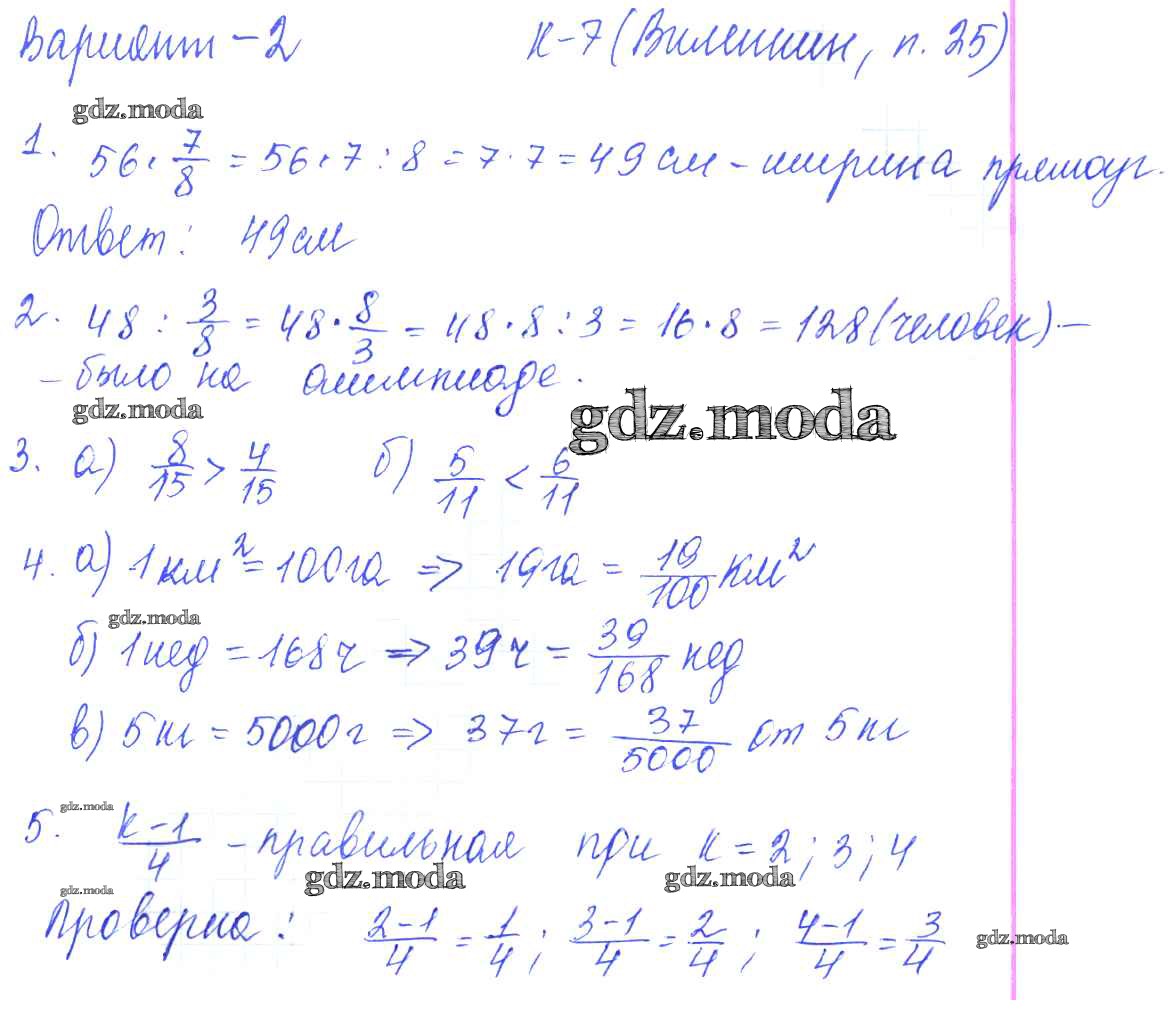 Вариант - 2 К-7 (Виленкин, п. 25)
gdz.moda
1. 56 · 7/8 = 56 · 7 : 8 = 7 · 7 = 49 см - ширина прямоуг.
Ответ: 49 см
2. 48 : 3/8 = 48 · 8/3 = 48 · 8 : 3 = 16 · 8 = 128 (человек) -
- было на олимпиаде.
gdz.moda
gdz.moda
3. а) 8/15 > 4/15 б) 5/11 < 6/11
4. а) 1 км² = 100 га => 19 га = 19/100 км²
gdz.moda
б) 1 нед = 168 ч => 39 ч = 39/168 нед
в) 5 кг = 5000 г => 37 г = 37/5000 от 5 кг
gdz.moda
5. k-1/4 - правильная при k = 2; 3; 4
gdz.moda gdz.moda
gdz.moda
Проверка: 2-1/4 = 1/4; 3-1/4 = 2/4; 4-1/4 = 3/4
gdz.moda